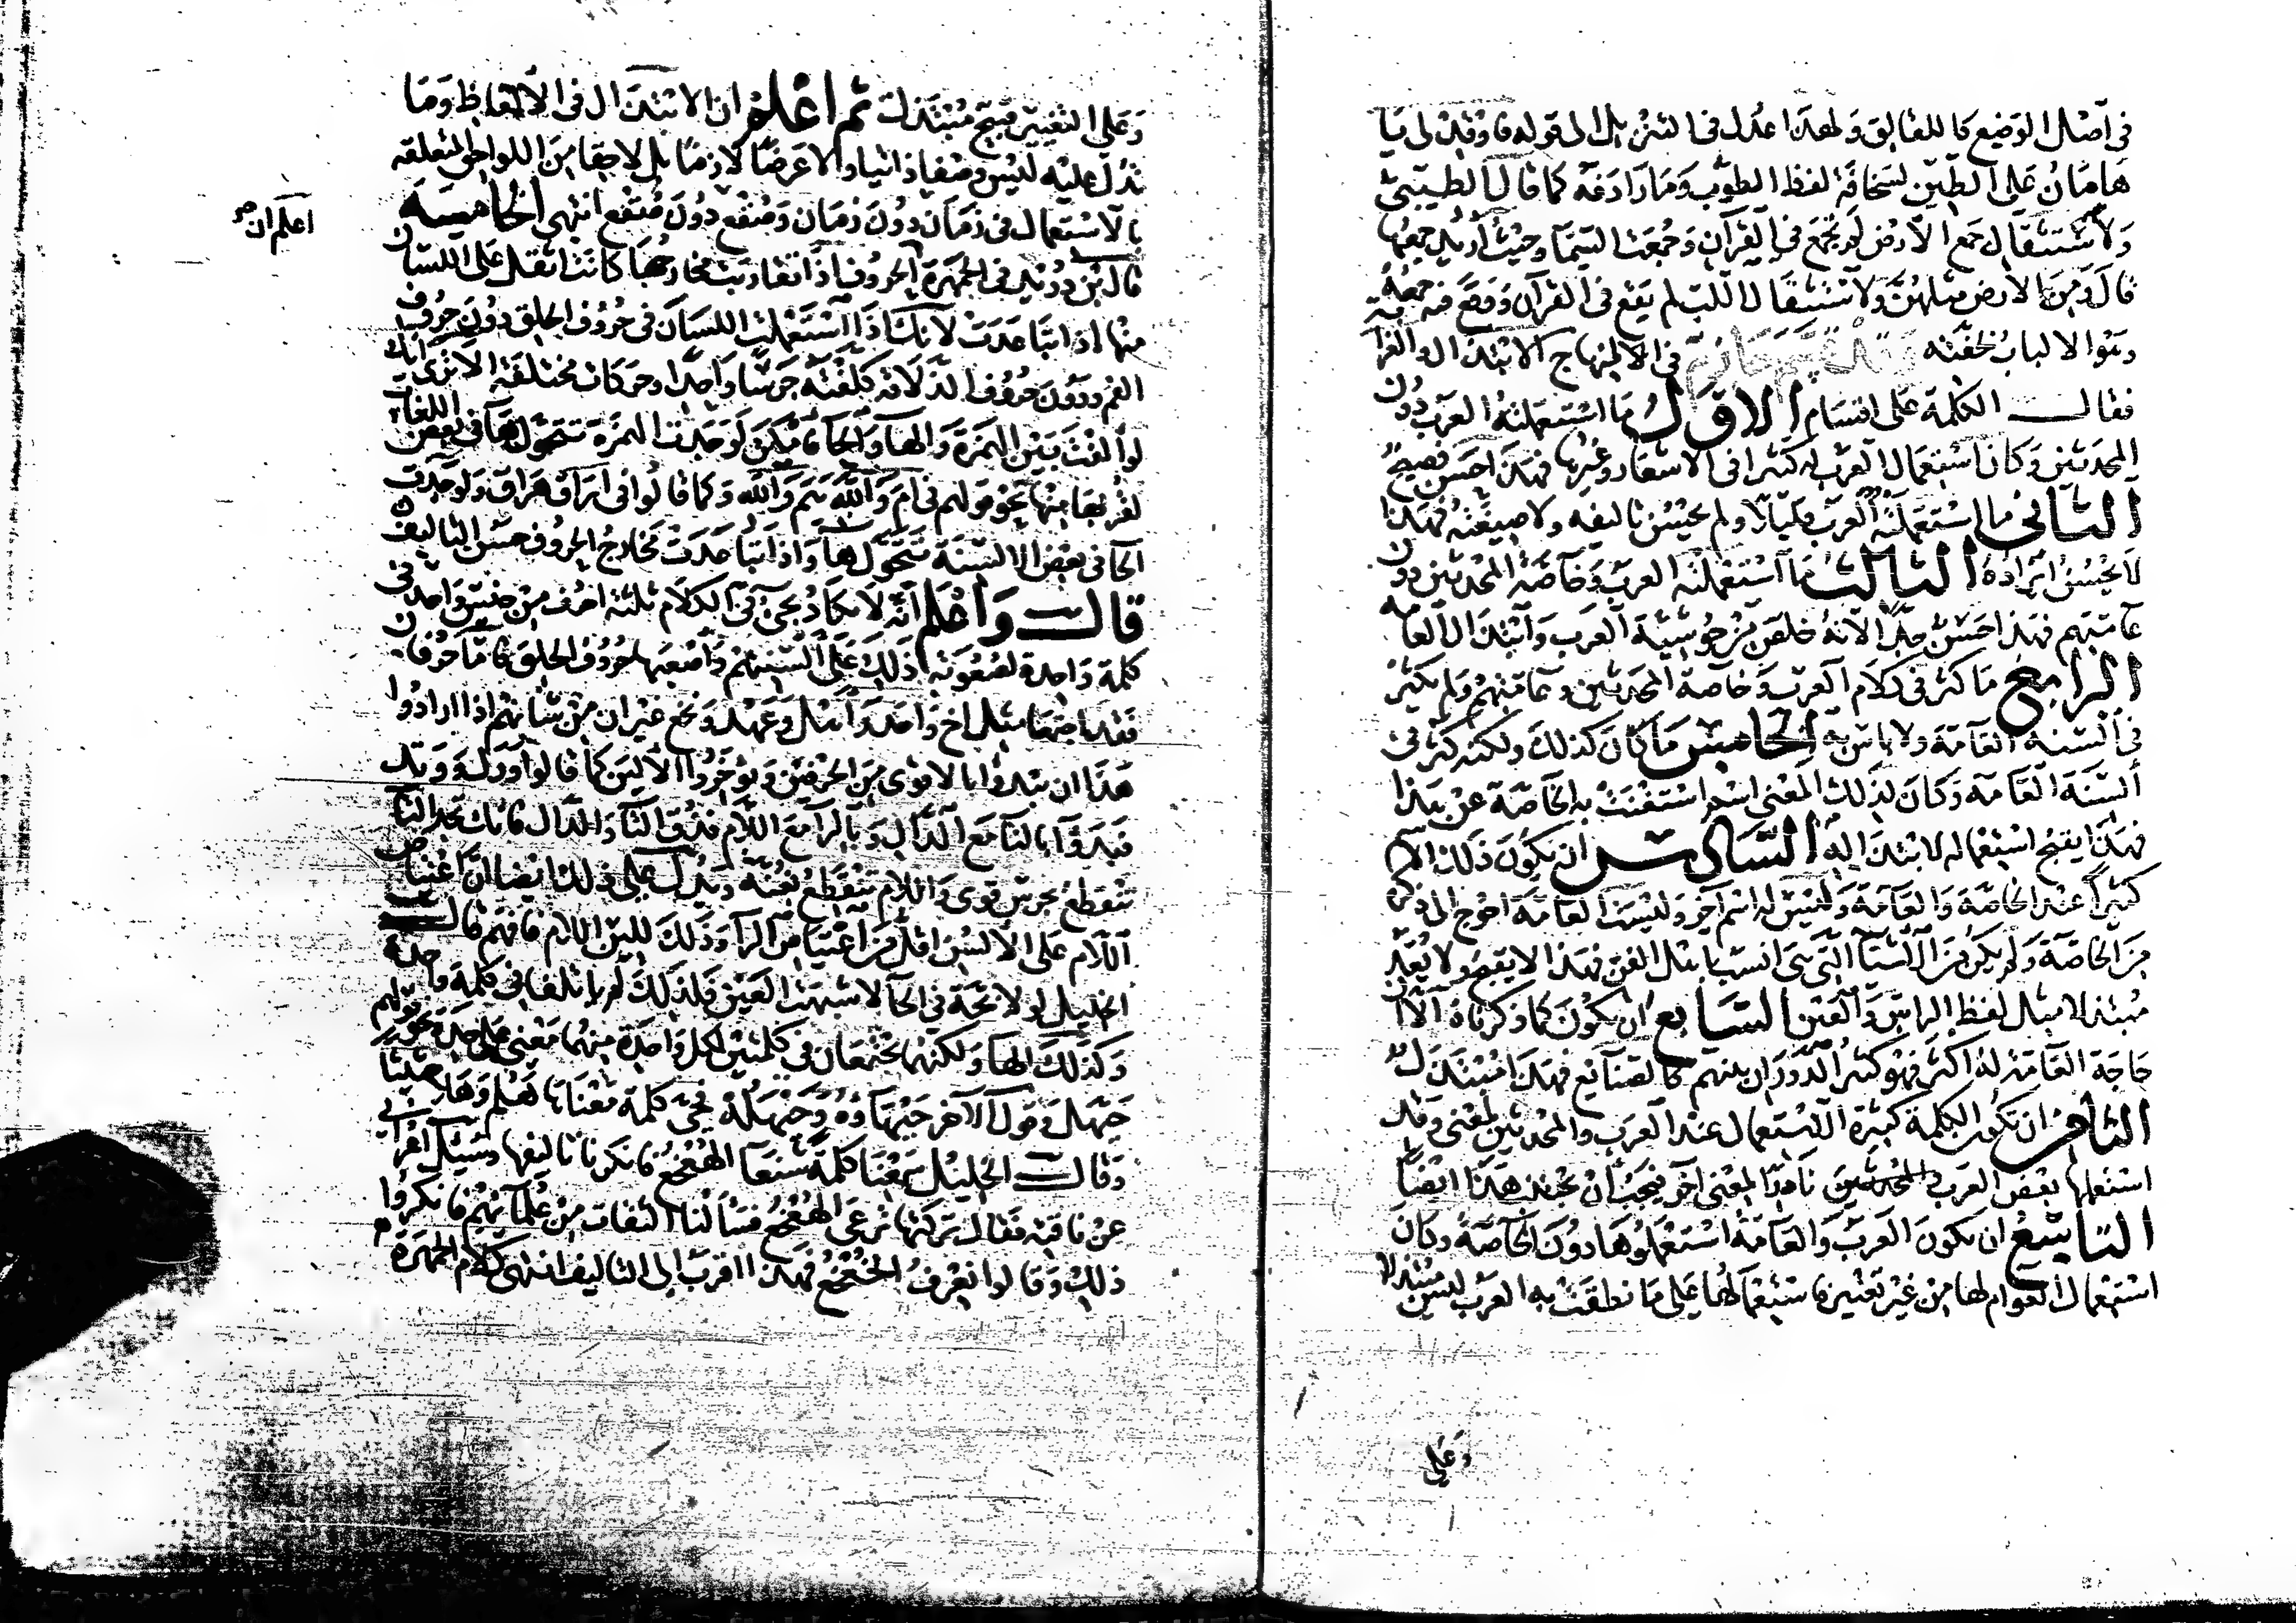 في اصل الوضع كاللقالق ولهذا عدل في التنزيل الى قوله فاوقد لي يا
هامان على الطين لسخافة لفظ الطوب وما رادفه كما قال الطيبي
ولاستثقال جمع الارض لم تجمع في القرآن وجمعت السما وحيث اريد جمعها
قال ومن الارض مثلهن ولاستثقال اللب لم يقع في القرآن ووقع فيه جمعه
وهو الالباب لخفته في الابتذال والغرابة
فقال الكلمة على اقسام الاول ما استعملته العرب دون
المحدثين وكان استعمال العرب له كثيرا في الاشعار وغيرها فهذا حسن فصيح
الثاني ما استعملته العرب قليلا ولم يحسن تاليفه ولا صيغته فهذا
لا يحسن ايراده الثالث ما استعملته العرب وخاصة المحدثين دون
عامتهم فهذا حسن جدا لانه خلص من حوشية العرب وابتذال العامة
الرابع ما كثر في كلام العرب وخاصة المحدثين وعامتهم ولم يكثر
في السنة العامة ولا باس به الخامس ما كان كذلك ولكنه كثر في
السنة العامة وكان لذلك المعنى اسم استغنت به الخاصة عن هذا
فهذا يقبح استعماله لابتذاله السادس ان يكون ذلك الاسم
كثيرا عند الخاصة والعامة وليس له اسم آخر وليست العامة احوج الى ذكره
من الخاصة ولم يكن من الاشيا التي هي انسب باهل المهن فهذا لا يقبح ولا يعد
مبتذلا مثل لفظ الراس والعين السابع ان يكون كما ذكرناه الا ان
حاجة العامة له اكثر فهو كثير الدوران بينهم كالصنايع فهذا مبتذل
الثامن ان تكون الكلمة كثيرة الاستعمال عند العرب والمحدثين لمعنى وقد
استعملها بعض العرب والمحدثين نادرا لمعنى آخر فيجب ان يجتنب هذا ايضا
التاسع ان يكون العرب والعامة استعملوها دون الخاصة وكان
استعمال العوام لها من غير تغيير فاستعمالها على ما نطقت به العرب ليس مبتذلا
وعلى
وعلى التغيير قبيح مبتذل ثم اعلم ان الابتذال في الالفاظ وما
تدل عليه ليس وصفا ذاتيا ولا عرضا لازما بل لاحقا من اللواحق المتعلقة
بالاستعمال في زمان دون زمان وصقع دون صقع انتهى الخامسة
اعلم ان صح
قال ابن دريد في الجمهرة الحروف اذا تقاربت مخارجها كانت اثقل على اللسان
منها اذا تباعدت لانك اذا استعملت اللسان في حروف الحلق دون حروف
الفم ودون حروف الذلاقة كلفته جرسا واحدا وحركات مختلفة الا ترى انك
لو الفت بين الهمزة والها والحا فامكن لوجدت الهمزة تتحول ها في بعض اللغات
لقربها منها نحو قولهم في ام والله هم والله وكما قالوا في اراق هراق ولوجدت
الحا في بعض الالسنة تتحول ها واذا تباعدت مخارج الحروف حسن التاليف
قال واعلم انه لا يكاد يجئ في الكلام ثلثة احرف من جنس واحد في
كلمة واحدة لصعوبة ذلك على السنتهم واصعبها حروف الحلق فاما حرفان
فقد اجتمعا مثل اخ واحد واهل وعهد ونخع غير ان من شانهم اذا ارادوا
هذا ان يبدوا بالاقوى من الحرفين ويوخروا الالين كما قالوا ورل ووتد
فبدوا بالتا مع الدال وبالرا مع اللام فذق التا والدال فانك تجد التا
تنقطع بجرس قوى واللام تنقطع بغنة ويدل على ذلك ايضا ان اعتياص
اللام على الالسن اقل من اعتياص الرا وذلك للين اللام فافهم قال
الخليل لولا بحة في الحا لاشبهت العين فلذلك لم ياتلفا في كلمة واحدة
وكذلك الها ولكنهما يجتمعان في كلمتين لكل واحدة منهما معنى على حدة نحو قولهم
حيهل وقول الآخر حيهاؤه وحيهله فحي كلمة معناها هلم وهلا حثيثا
وقال الخليل سمعنا كلمة شنعا الهعخع فانكرنا تاليفها وسئل اعرابي
عن ناقته فقال تركتها ترعى الهعخع فسالنا الثقات من علمائهم فانكروا
ذلك وقالوا نعرف الخعخع فهذا اقرب الى التاليف انتهى كلام الجمهرة